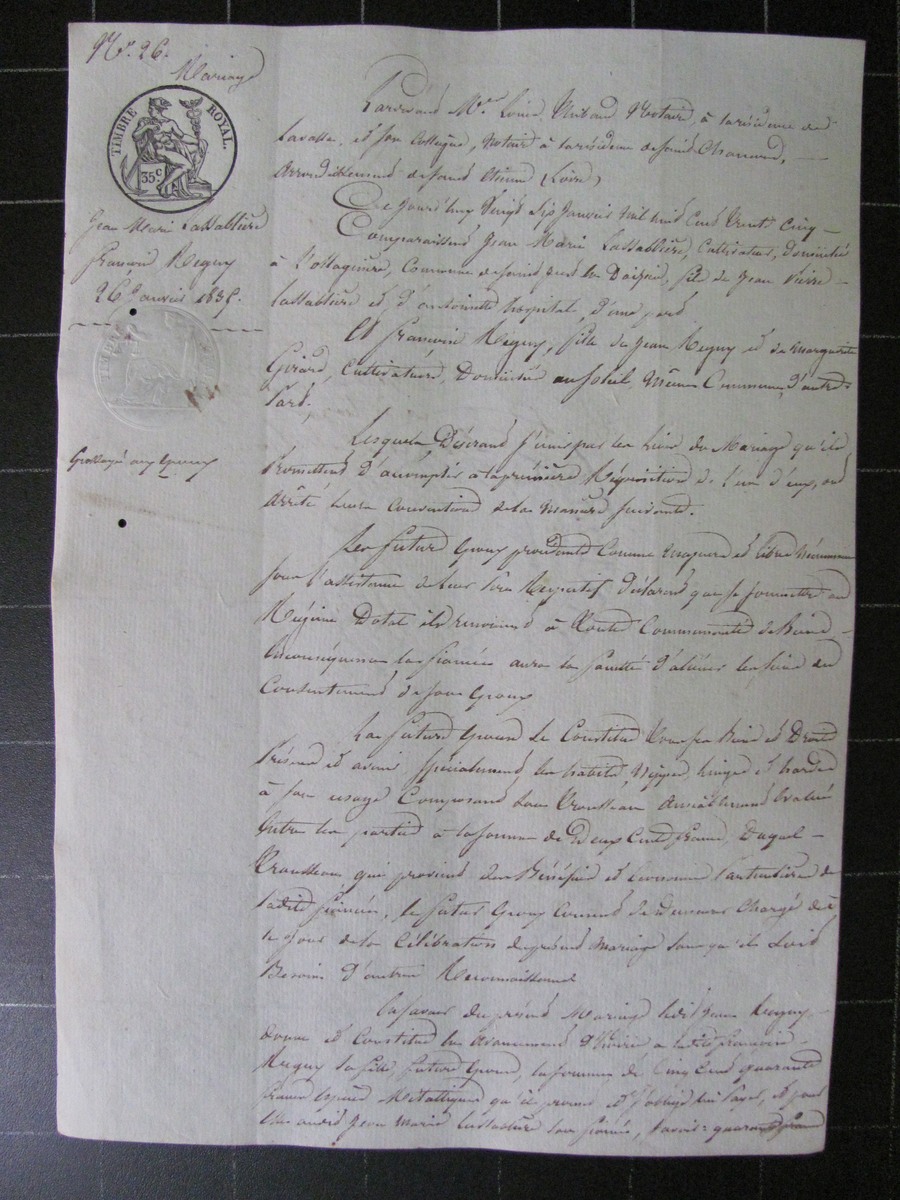 N.º 26.
Mariage
TIMBRE ROYAL.
35 c
Jean Marie Lassablière
Françoise Reguy
26 Janvier 1835.
Pardevant M.e Louis Notaire, à la résidence de
Lavalla, et son Collègue, Notaire à la résidence de Saint Chamond,
Arrondissement de Saint Etienne (Loire)
Ce Jourd'huy Vingt Six Janvier Mil huit Cent Trente Cinq
Comparaissent Jean Marie Lassablière, Cultivateur, Domicilié
à Commune de Saint Doizieu, fils de Jean Pierre
Lassablière et d'antoinette hospital, d'une part
Et Françoise Reguy, fille de Jean Reguy et de Marguerite
Girard, Cultivateurs, Domiciliée au Même Commune, d'autre
Part.
Lesquels Désirant s'unir par les liens du Mariage qu'ils
Promettent d'accomplir à la première Réquisition de l'un d'eux, ont
Arrêté leurs Conventions de la Manière Suivante.
Les futurs Epoux procédants Comme Majeurs et libres Néanmoins
sous l'assistance de leurs Pères Respectifs Déclarent que se soumettre au
Régime Dotal ils renoncent à Toute Communauté de Biens
En conséquence la fiancée aura la faculté d'aliéner les siens du
Consentement de son Epoux
La future Epouse se Constitue Tous ses Biens et Droits
Présents et avenir, spécialement les habits, Nippes linges et hardes
à son usage Composant son Trousseau Amiablement Evalué
Entre les parties à la somme de Deux Cents francs, Duquel
Trousseau qui provient des Bénéfices et économies Particulières de
ladite fiancée, le futur Epoux Consent de Demeurer Chargé dès
le jour de la Célébration du présent Mariage sans qu'il Soit
Besoin d'autre Reconnaissance
En faveur du présent Mariage ledit Jean Reguy
Donne et Constitue en Avancement d'hoirie à ladite françoise
Reguy sa fille, future Epouse, la somme de Cinq Cents quarante
francs Espèces Métalliques qu'il promet et s'oblige lui Payer, et pour
Elle audit Jean Marie Lassablière son fiancé, Savoir: quarante francs